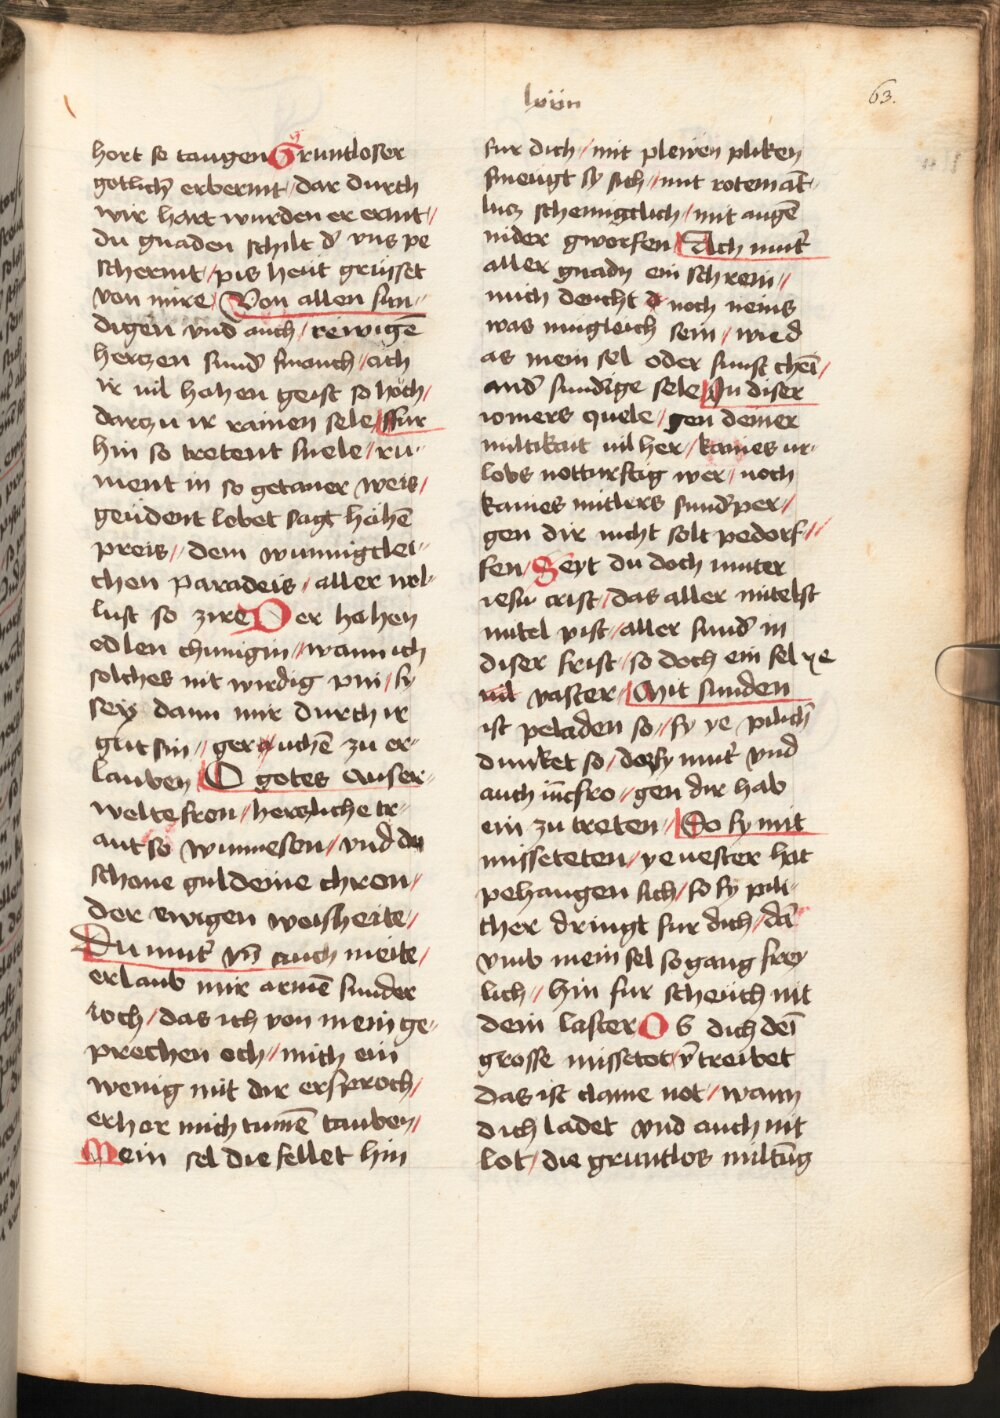 lxiiii
63.
hort so taugen Gruntloser
gotlich erbermt / dar durch
wir hart wurden er ernert //
du gnaden schilt d vns pe
schermt / pis heut grüsset
von mire / Von allen sun //
digen vnd auch / rewigē
herczen sund smauch / ach
ir vil hohen geist so hoch /
darzu ir rainen sele / ffur
hin so tretent snele / ru-
ment in so getaner weis /
geudent lobet sagt hohē
preis // dem wunnigklei-
chen paradeis / aller wol-
lust so zire Der hohen
edlen chunigin // wann ich
solches nit wirdig pin / sy
sey dann mir durch ir
gut sin // geruchē zu er-
lauben / O gotes auser-
welte fron / herczliche tr-
aut so wunnesen / vnd du
schone guldeine chron /
der ewigen weisheite /
Du mut' vn̄ auch meite /
erlaub mir armē sunder
doch / das ich von mein ge-
prechen och / mich ein
wenig mit dir ersproch /
erhor mich tumē tauben /
Mein sel die fellet hin
fur dich / mit plewen pliken
smeugt sy sich / mit rotem āt-
lucz schemigklich / mit augē
nider gworfen / Ach mut'
aller gnadn ein schrein //
mich deucht noch neins
was mugleich sein / wied
as mein sel oder sunst chei /
and' sundige sele / In diser
iomers quele / gen deiner
miltikait vil her / kaines ur-
lobs notturftig wer / noch
kaines mitlers sund'per /
gen dir nicht solt pedorf- //
fen / Seyt du doch muter
iesu crist / das aller mitelst
mitel pist / aller sund' in
diser frist / so doch ein sel ye
vil vaster / Mit sunden
ist peladen so / sy ye pilich
dunket so / dorfy mut' vnd
auch iūcfro // gen dir hab
ein zu treten / Do sy mit
misseteten / ye vester hat
pehangen sich / so sy pili-
cher dringt fur dich / dar
vmb mein sel so gang frey
lich // hin fur scheuch nit
dein laster O b dich dei
grosse missetot v'treibet
das ist claine not / wann
dich ladet vnd auch nit
lot / die gruntlos miltung